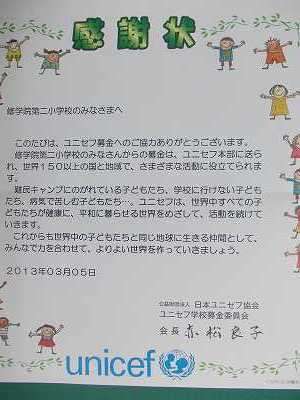 感謝状
修学院第二小学校のみなさまへ
このたびは、ユニセフ募金へのご協力ありがとうございます。
修学院第二小学校のみなさんからの募金は、ユニセフ本部に送られ、世界150以上の国と地域で、さまざまな活動に役立てられます。
難民キャンプにのがれている子どもたち、学校に行けない子どもたち、病気で苦しむ子どもたち…。ユニセフは、世界中すべての子どもたちが健康に、平和に暮らせる世界をめざして、活動を続けていきます。
これからも世界中の子どもたちと同じ地球に生きる仲間として、みんなで力を合わせて、よりよい世界を作っていきましょう。
2013年03月05日
公益財団法人 日本ユニセフ協会
ユニセフ学校募金委員会
会長 赤松良子
unicef